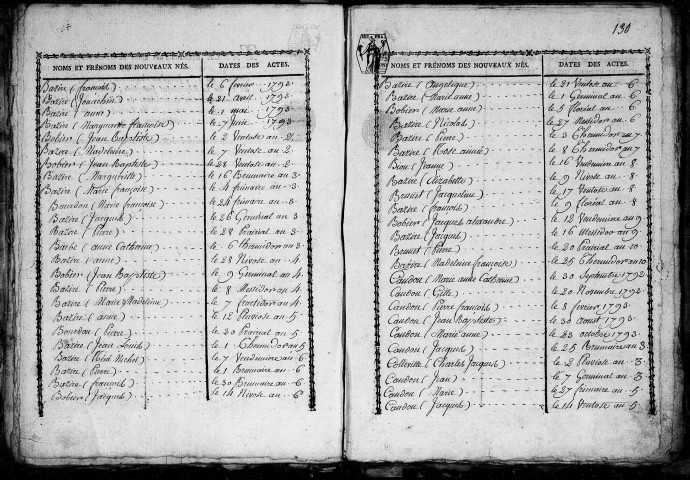 NOMS ET PRÉNOMS DES NOUVEAUX NÉS. DATES DES ACTES.
Bazire (françois) le 6 fevrier 1793
Bazire le 21 avril 1793
Bazire (anne) le 1 mai 1793
Bazire (Marguerite françoise) le 7 Juin 1793
Bobier (Jean Baptiste) le 2 Ventose an 2
Bazire (Madeleine) le 7 Ventose an 2
Bobier (Jean Baptiste) le 28 Ventose an 2
Bazire (Margueritte) le 16 Brumaire an 3
Bazire (Marie françoise) le 4 frimaire an 3
Bourdon (Marie françoise) le 24 frimaire an 3
Bazire (Jacques) le 26 Germinal an 3
Bazire (Pierre) le 28 Prairial an 3
Barbe (anne Catherine) le 6 Thermidor an 3
Bazire (anne) le 28 Nivose an 4
Bobier (Jean Baptiste) le 9 Germinal an 4
Bazire (Pierre) le 8 Messidor an 4
Bazire (Marie Madeleine) le 7 fructidor an 4
Bazire (anne) le 12 Pluviose an 5
Bourdon (Pierre) le 30 Prairial an 5
Bazire (Jean Louis) le 1 Thermidor an 5
Bazire (Noël Michel) le 7 Vendemiaire an 6
Bazire (Pierre) le 1 Brumaire an 6
Bazire (françois) le 30 Brumaire an 6
Bobier (Jacques) le 14 Nivose an 6
130
NOMS ET PRÉNOMS DES NOUVEAUX NÉS. DATES DES ACTES.
Bazire (Angelique) le 21 Ventose an 6
Bazire (Marie anne) le 1 Germinal an 6
Bobier (Marie anne) le 8 floréal an 6
Bazire (Nicolas) le 27 Messidor an 6
Bazire (Pierre) le 3 Thermidor an 7
Bazire (Rose aimée) le 8 Thermidor an 7
(Jeanne) le 16 Vendemiaire an 8
Bazire (Elizabette) le 9 Nivose an 8
(Jacqueline) le 17 Ventose an 8
Bazire (françois) le 9 floréal an 8
Bobier (Jacques alexandre) le 12 Vendemiaire an 9
Bazire (Jacques) le 16 Messidor an 9
(Pierre) le 20 Prairial an 10
Bazire (Madeleine françoise) le 25 Thermidor an 10
Caudon (Marie anne Catherine) le 30 Septembre 1792
Caudon (Gille) le 20 Novembre 1792
Caudon (Pierre françois) le 8 fevrier 1793
Caudon (Jean Baptiste) le 30 aoust 1793
Caudon (Marie anne) le 23 octobre 1793
Caudon (Jacques) le 25 Brumaire an 3
Colleville (Charles Jacques) le 2 Pluviose an 3
Caudon (Jean) le 7 Germinal an 3
Caudon (Marie) le 27 frimaire an 5
Caudon (Jacques) le 14 Ventose an 5